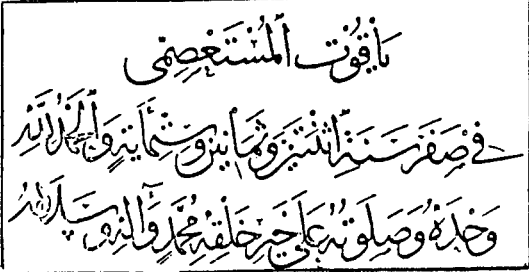 ياقُوت المُسْتَعْصِمي
في صَفَر سَنَةِ اثْنَتَيْن وثَمانين وستمائة والحمد لله
وَحْدَهُ وصَلَوتُهُ عَلى خَيْرِ خَلْقِهِ مُحَمَّدٍ وآلِهِ وسلامه